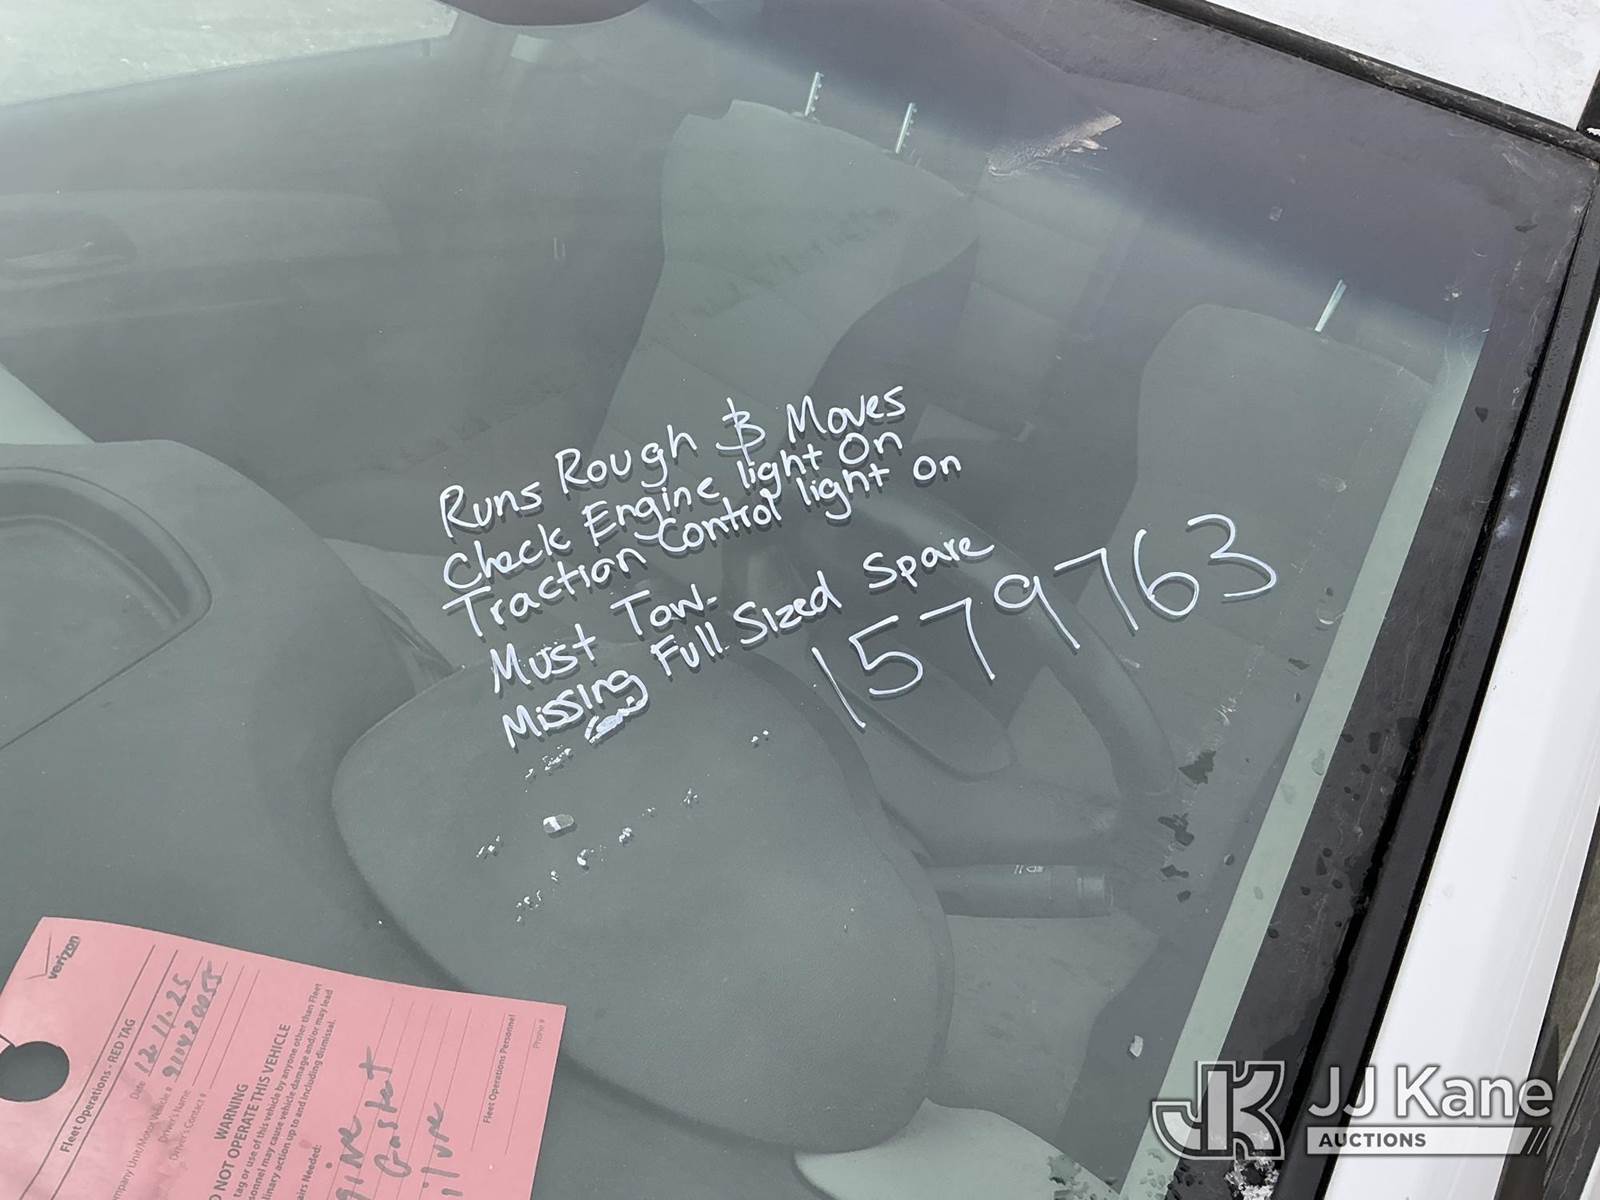 Runs Rough & Moves
Check Engine light On
Traction Control light on
Must Tow.
Missing Full Sized Spare
1579763
verizon
Fleet Operations - RED TAG
Date 12.11.25
Company Unit/Motor Vehicle #
Driver's Name
Driver's Contact #
WARNING
DO NOT OPERATE THIS VEHICLE
tag or use of this vehicle by anyone other than Fleet
may cause vehicle damage and/or may lead
up to and including dismissal.
Needed:
Gasket
Fleet Operations Personnel
Phone #
JJ Kane
AUCTIONS